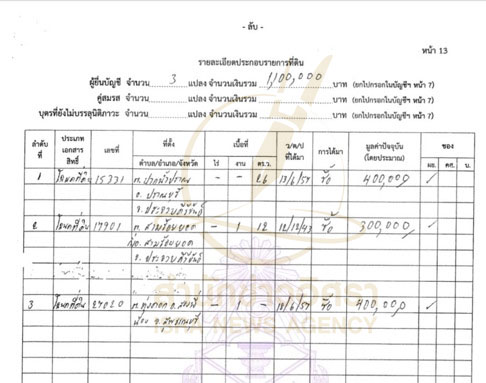 - ลับ -
หน้า 13
รายละเอียดประกอบรายการที่ดิน
ผู้ยื่นบัญชี จำนวน 3 แปลง จำนวนเงินรวม 1,100,000 บาท (ยกไปกรอกในบัญชีฯ หน้า 7)
คู่สมรส จำนวน แปลง จำนวนเงินรวม บาท (ยกไปกรอกในบัญชีฯ หน้า 7)
บุตรที่ยังไม่บรรลุนิติภาวะ จำนวน แปลง จำนวนเงินรวม บาท (ยกไปกรอกในบัญชีฯ หน้า 7)
ลำดับที่ ประเภทเอกสารสิทธิ์ เลขที่ ที่ตั้ง เนื้อที่ ว/ด/ป ที่ได้มา การได้มา มูลค่าปัจจุบัน (โดยประมาณ) ของ
ตำบล/อำเภอ/จังหวัด ไร่ งาน ตร.ว. ผย. คส. บ.
1 โฉนดที่ดิน 15331 ต. ปากน้ำปราณ - - 26 ซื้อ 400,000 ✓
อ. ปราณบุรี
จ. ประจวบคีรีขันธ์
2 โฉนดที่ดิน 17901 ต. สามร้อยยอด - 1 12 12/12/43 ซื้อ 300,000 ✓
สามร้อยยอด
จ. ประจวบคีรีขันธ์
สำนักข่าวอิศรา
ISRA NEWS AGENCY
3 โฉนดที่ดิน 27020 - - ซื้อ 400,000 ✓
จ. สุพรรณบุรี